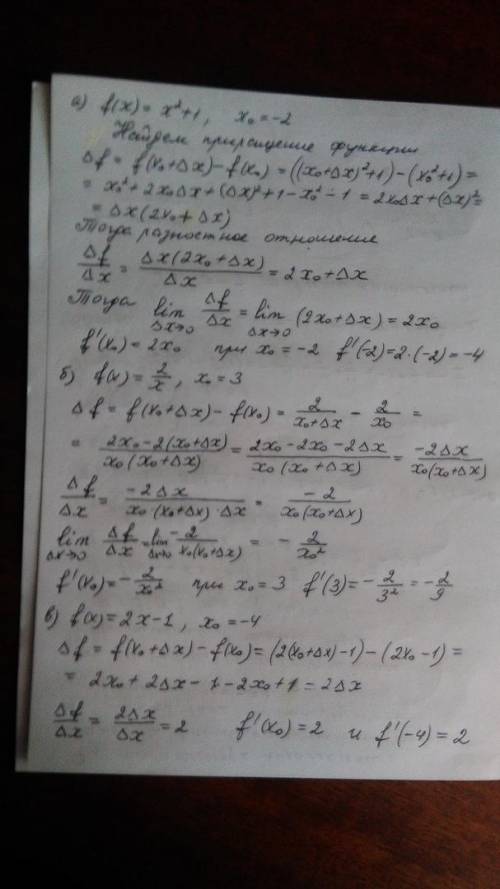 а) f(x) = x²+1, x₀ = -2
Найдем приращение функции
Δf = f(x₀+Δx) - f(x₀) = ((x₀+Δx)²+1) - (x₀²+1) =
= x₀² + 2x₀Δx + (Δx)² + 1 - x₀² - 1 = 2x₀Δx + (Δx)² =
= Δx(2x₀ + Δx)
Тогда разностное отношение
Δf/Δx = Δx(2x₀+Δx)/Δx = 2x₀+Δx
Тогда lim Δx→0 Δf/Δx = lim Δx→0 (2x₀+Δx) = 2x₀
f'(x₀) = 2x₀ при x₀ = -2 f'(-2) = 2·(-2) = -4
б) f(x) = 2/x, x₀ = 3
Δf = f(x₀+Δx) - f(x₀) = 2/(x₀+Δx) - 2/x₀ =
= (2x₀-2(x₀+Δx))/(x₀(x₀+Δx)) = (2x₀-2x₀-2Δx)/(x₀(x₀+Δx)) = -2Δx/(x₀(x₀+Δx))
Δf/Δx = -2Δx/(x₀(x₀+Δx)·Δx) = -2/(x₀(x₀+Δx))
lim Δx→0 Δf/Δx = lim Δx→0 -2/(x₀(x₀+Δx)) = -2/x₀²
f'(x₀) = -2/x₀² при x₀ = 3 f'(3) = -2/3² = -2/9
в) f(x) = 2x-1, x₀ = -4
Δf = f(x₀+Δx) - f(x₀) = (2(x₀+Δx)-1) - (2x₀-1) =
= 2x₀ + 2Δx - 1 - 2x₀ + 1 = 2Δx
Δf/Δx = 2Δx/Δx = 2 f'(x₀) = 2 и f'(-4) = 2